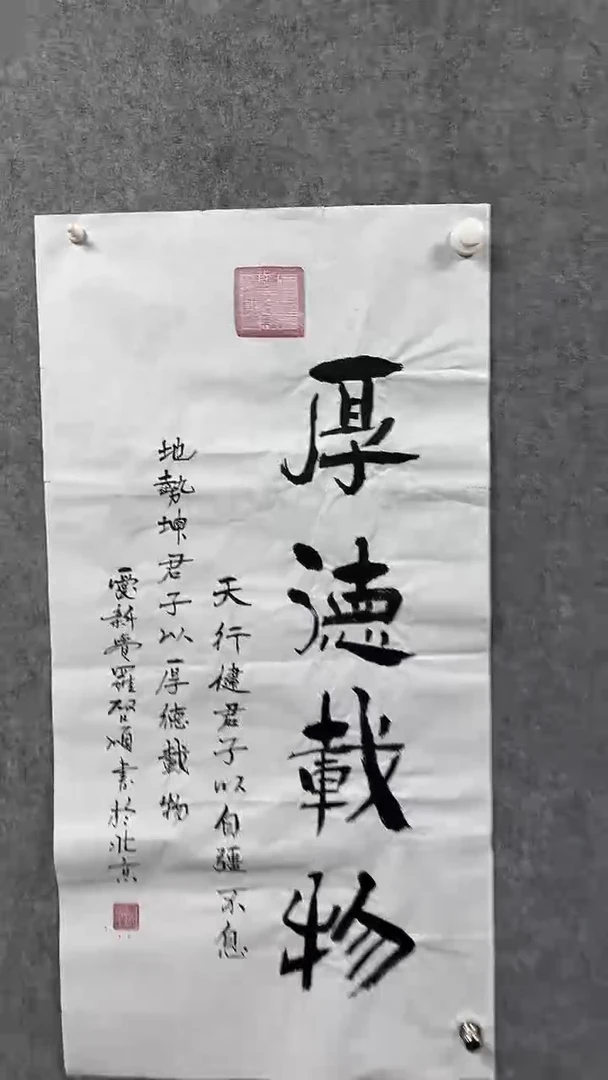 厚德載物
天行健君子以自強不息
地勢坤君子以厚德載物
愛新覺羅啓順書於北京